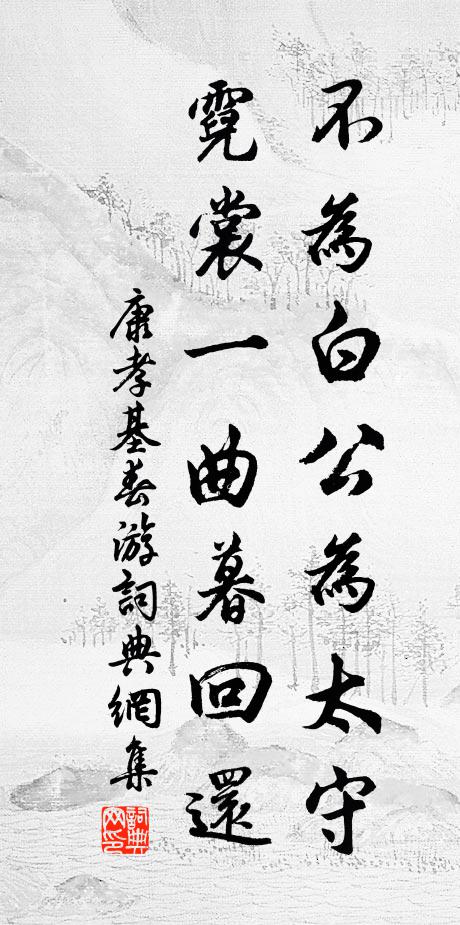 不為白公為太守
霓裳一曲暮回還
康孝基春游詞典網集
詞典
网印